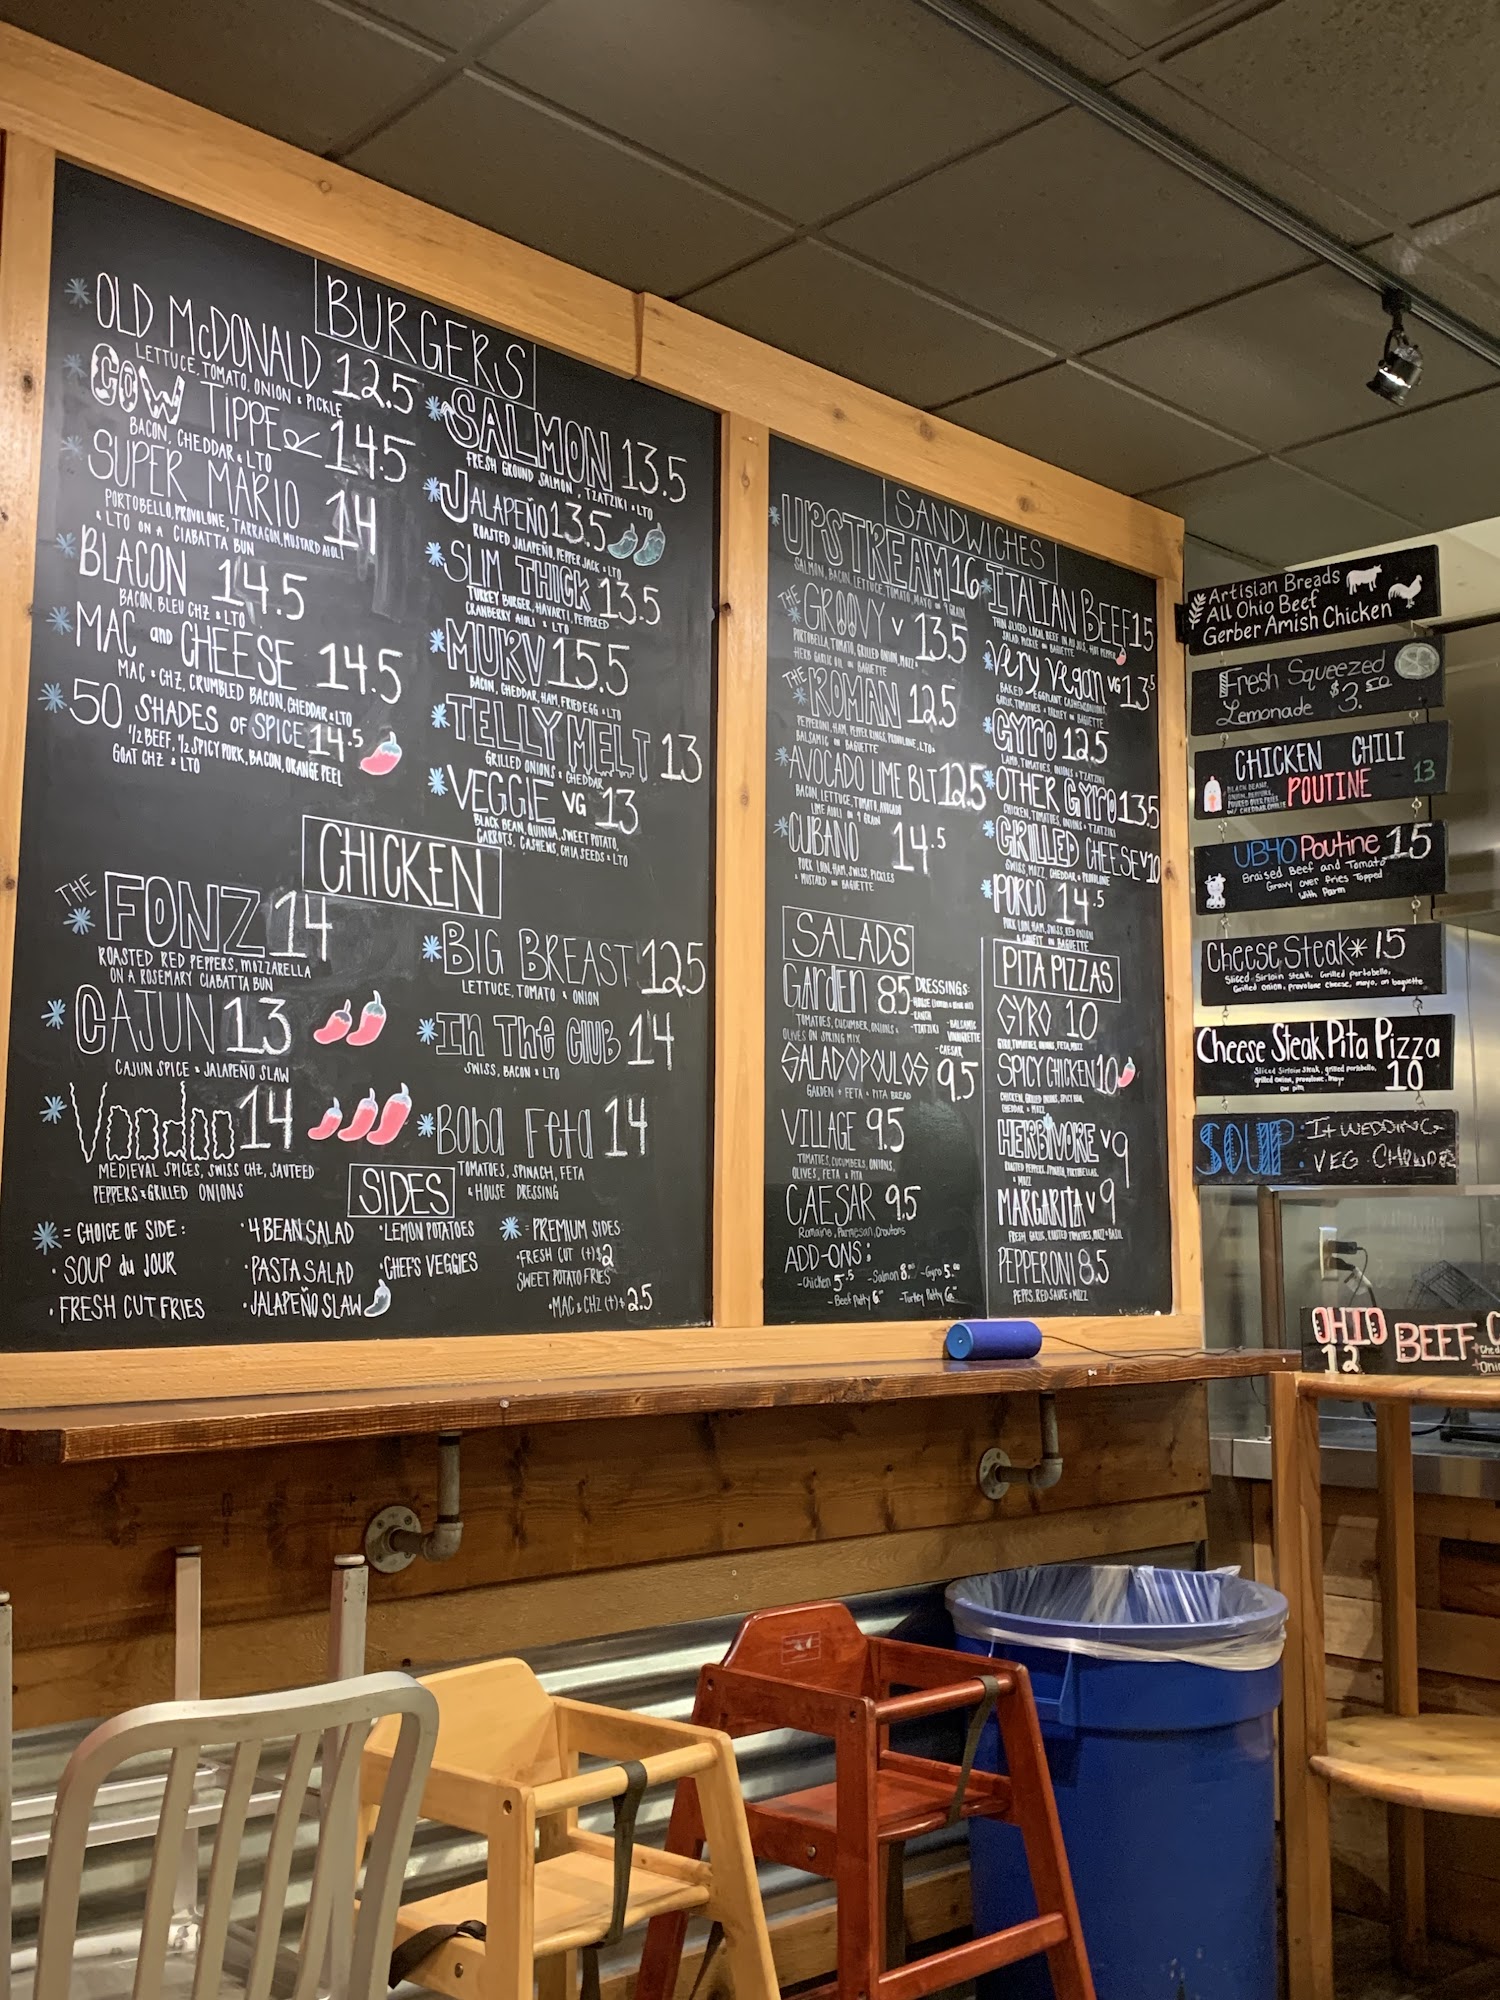 BURGERS
* OLD McDONALD 12.5
LETTUCE, TOMATO, ONION & PICKLE
* COW TIPPER 14.5
BACON, CHEDDAR & LTO
* SUPER MARIO 14
PORTOBELLO, PROVOLONE, TARRAGON, MUSTARD AIOLI
& LTO ON A CIABATTA BUN
* BLACON 14.5
BACON, BLEU CHZ & LTO
* MAC and CHEESE 14.5
MAC & CHZ, CRUMBLED BACON, CHEDDAR & LTO
* 50 SHADES of SPICE 14.5
1/2 BEEF, 1/2 SPICY PORK, BACON, ORANGE PEEL
GOAT CHZ & LTO
* SALMON 13.5
FRESH GROUND SALMON, TZATZIKI & LTO
* JALAPEÑO 13.5
ROASTED JALAPEÑO, PEPPER JACK & LTO
* SLIM THICK 13.5
TURKEY BURGER, HAVARTI, PEPPERED
CRANBERRY AIOLI & LTO
* MURV 15.5
BACON, CHEDDAR, HAM, FRIED EGG & LTO
* TELLY MELT 13
GRILLED ONIONS & CHEDDAR
* VEGGIE VG 13
BLACK BEAN, QUINOA, SWEET POTATO,
CARROTS, CASHEWS, CHIA SEEDS & LTO
CHICKEN
THE
* FONZ 14
ROASTED RED PEPPERS, MOZZARELLA
ON A ROSEMARY CIABATTA BUN
* CAJUN 13
CAJUN SPICE & JALAPEÑO SLAW
* Voodoo 14
MEDIEVAL SPICES, SWISS CHZ, SAUTEED
PEPPERS & GRILLED ONIONS
* BIG BREAST 12.5
LETTUCE, TOMATO & ONION
* IN THE CLUB 14
SWISS, BACON & LTO
* Boba Feta 14
TOMATOES, SPINACH, FETA
& HOUSE DRESSING
SIDES
* = CHOICE OF SIDE:
• SOUP du JOUR
• FRESH CUT FRIES
• 4 BEAN SALAD
• PASTA SALAD
• JALAPEÑO SLAW
• LEMON POTATOES
• CHEFS VEGGIES
* = PREMIUM SIDES:
• FRESH CUT (+) $2
SWEET POTATO FRIES
• MAC & CHZ (+) $2.5
SANDWICHES
* UPSTREAM 16
SALMON, BACON, LETTUCE, TOMATO, MAYO on 9 GRAIN
THE
* GROOVY V 13.5
PORTOBELLA, TOMATO, GRILLED ONION, MOZZ &
HERB GARLIC OIL on BAGUETTE
THE
* ROMAN 12.5
PEPPERONI, HAM, PEPPER RINGS, PROVOLONE, LTO &
BALSAMIC on BAGUETTE
* AVOCADO LIME BLT 12.5
BACON, LETTUCE, TOMATO, AVOCADO
LIME AIOLI on 9 GRAIN
* CUBANO 14.5
PORK LOIN, HAM, SWISS, PICKLES
& MUSTARD on BAGUETTE
* ITALIAN BEEF 15
THIN SLICED LOCAL BEEF IN AU JUS, HOT PEPPER
SALAD, PICKLE on BAGUETTE
* Very Vegan VG 13.5
GARLIC, TOMATOES & PARSLEY on BAGUETTE
* GYRO 12.5
LAMB, TOMATOES, ONIONS & TZATZIKI
* OTHER GYRO 13.5
CHICKEN, TOMATOES, ONIONS & TZATZIKI
* GRILLED CHEESE V 10
SWISS, MOZZ, CHEDDAR & PROVOLONE
* PORCO 14.5
PORK LOIN, HAM, SWISS, RED ONION
& CONFIT on BAGUETTE
SALADS
GARDEN 8.5
TOMATOES, CUCUMBER, ONIONS &
OLIVES ON SPRING MIX
DRESSINGS:
-RANCH
-TZATZIKI
-BALSAMIC
VINAIGRETTE
-CAESAR
SALADOPOULOS 9.5
GARDEN + FETA & PITA BREAD
VILLAGE 9.5
TOMATIES, CUCUMBERS, ONIONS,
OLIVES, FETA & PITA
CAESAR 9.5
Romaine, Parmesan, Croutons
ADD-ONS:
-Chicken 5.5 -Salmon 8.00 -Gyro 5.00
-Beef Patty 6.00 -Turkey Patty 6.00
PITA PIZZAS
GYRO 10
GYRO, TOMATOES, ONIONS, FETA, MOZZ
SPICY CHICKEN 10
CHICKEN, GRILLED ONIONS, SPICY BBQ,
CHEDDAR & MOZZ
HERBIVORE V 9
ROASTED PEPPERS, SPINACH, PORTOBELLAS,
& MOZZ
MARGARITA V 9
FRESH GARLIC, ROASTED TOMATOES, MOZZ & BASIL
PEPPERONI 8.5
PEPPS, RED SAUCE & MOZZ
Artisian Breads
All Ohio Beef
Gerber Amish Chicken
Fresh Squeezed
Lemonade $3.50
CHICKEN CHILI
POUTINE 13
UB40 Poutine 15
Braised Beef and Tomato
Gravy over fries Topped
with Parm
Cheese Steak* 15
Sliced Sirloin Steak, Grilled portobello,
Grilled onion, provolone cheese, mayo, on baguette
Cheese Steak Pita Pizza
Sliced Sirloin Steak, grilled portobello,
grilled onion, provolone, mayo
on pita
10
SOUP: It WEDDING
VEG. CHOWDER
OHIO BEEF
12